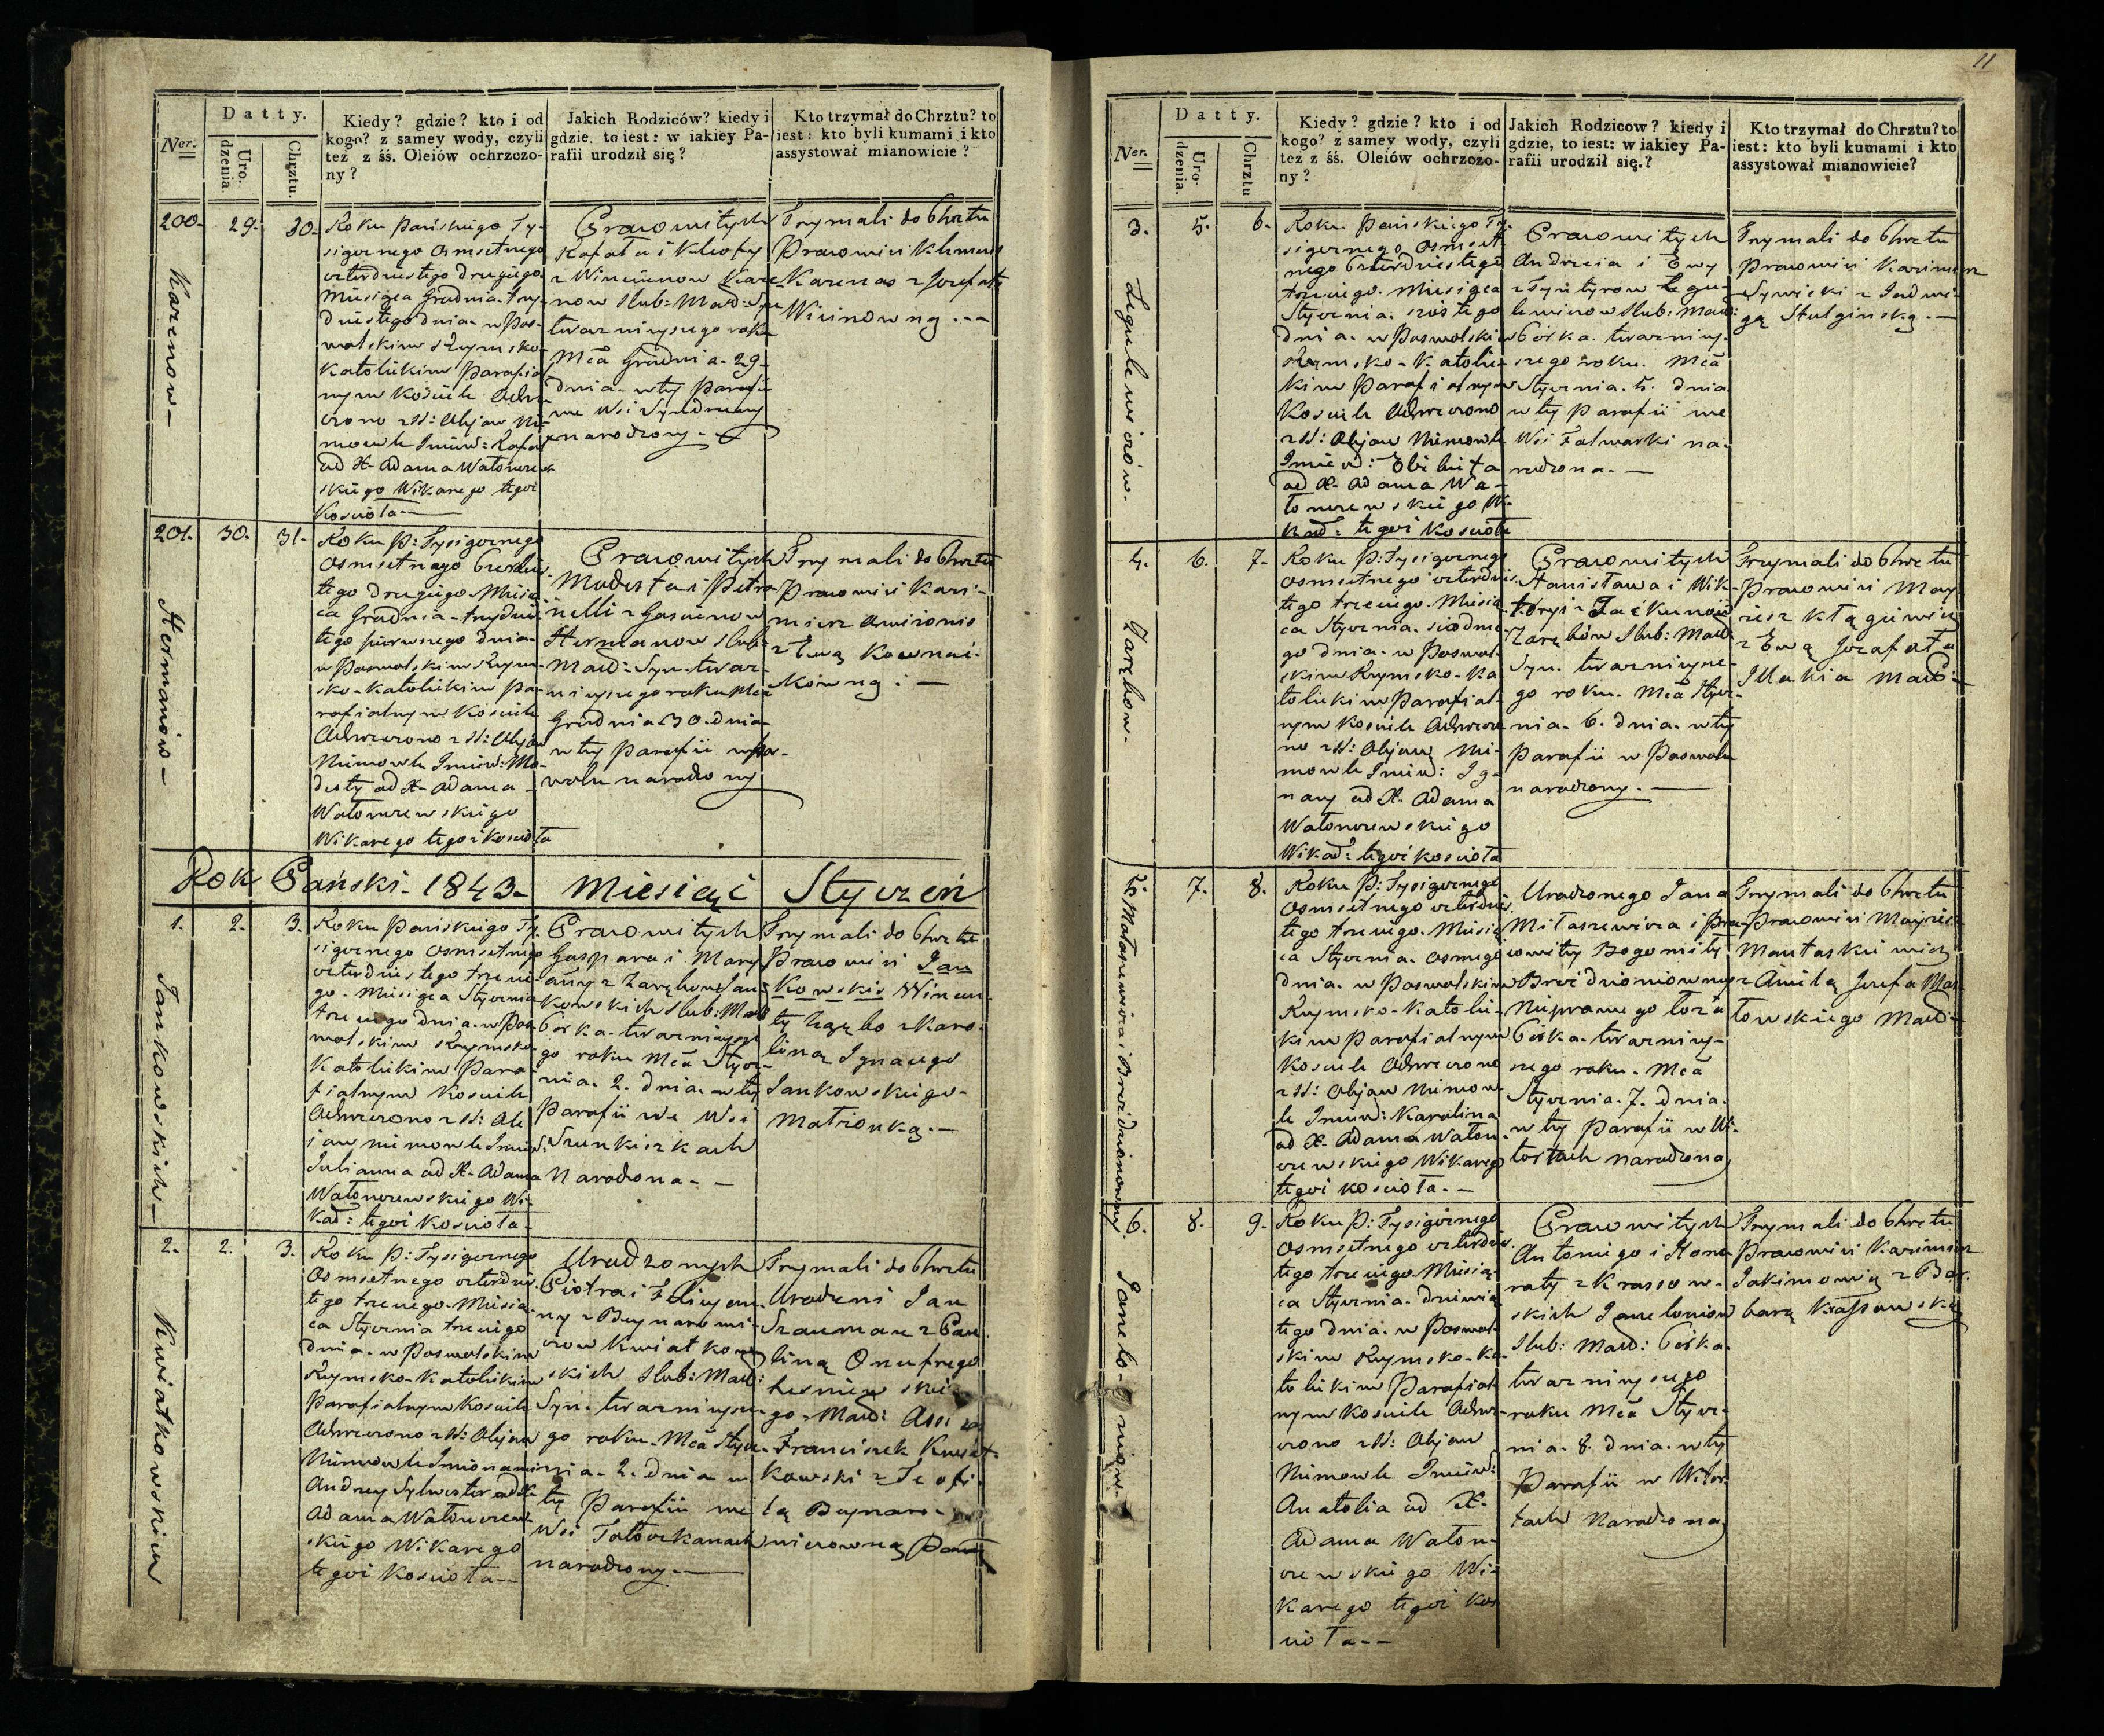 Ner.
Datty.
Uro.
dzenia.
Chrztu.
Kiedy? gdzie? kto i od
kogo? z samey wody, czyli
też z śś. Oleiów ochrzczo-
ny?
Jakich Rodziców? kiedy i
gdzie, to iest: w iakiey Pa-
rafii urodził się?
Kto trzymał do Chrztu? to
iest: kto byli kumami i kto
assystował mianowicie?
200.
Karenow
29.
30.
Roku Pańskiego Ty-
siącznego Osmsetnego
czterdziestego drugiego
Miesiąca Grudnia trzy-
dziestego dnia w Pos-
wolskim Rzymsko-
Katolickim Parafial-
nym Kościele Ochrz-
czono z SS: Olejow Nie-
mowle Imien: Rafał
od X. Adama Wołonczew-
skiego Wikarego tegoż
Kościoła
Prawowitych
Rafała i Kleofy
z Winciunow Kare-
now Slub: Małż: Syn
teraznieyszego roku
Mca Grudnia 29
dnia w tey Parafii
we Wsi
narodzony.
Trzymali do Chrztu
Prawowici Klemens
Karenas z Jozefatą
201.
Hermanow
30.
31.
Roku P: Tysiącznego
Osmsetnego Czterdzies-
tego drugiego Miesią-
ca Grudnia trzydzies-
tego pierwszego dnia
w Poswolskim Rzym-
sko-Katolickim Pa-
rafialnym Kościele
Ochrzczono z SS: Olejow
Niemowle Imien: Mo-
desty od X. Adama
Wołonczewskiego
Wikarego tegoż Kościoła
Prawowitych
Modesta i Petro-
nelli z
Hermanow Slub:
Małż: Syn teraz-
nieyszego roku Mca
Grudnia 30. dnia
w tey Parafii w Pos-
wolu narodzony
Trzymali do Chrztu
Prawowici Kazi-
mierz
z Ewą
Rok Pański 1843 Miesiąc Styczeń
1.
Jankowskich
2.
3.
Roku Pańskiego Ty-
siącznego Osmsetnego
czterdziestego trzecie-
go Miesiąca Stycznia
trzeciego dnia w Pos-
wolskim Rzymsko-
Katolickim Para-
fialnym Kościele
Ochrzczono z SS: Ole-
jow niemowle Imien:
Julianna od X. Adama
Wołonczewskiego Wi-
kar: tegoż Kościoła
Prawowitych
Gaspara i Mary-
anny z Zarębow Jan-
kowskich Slub: Małż:
Córka teraznieysze-
go roku Mca Stycz-
nia 2. dnia w tey
Parafii we Wsi
Szunkiszkach
Narodzona
Trzymali do Chrztu
Prawowici Jan
Kowskis Wincen-
ty Zarębo z Karo-
liną Ignacego
Jankowskiego
Matżonką.
2.
Kwiatkowskim
2.
3.
Roku P: Tysiącznego
Osmsetnego czterdzies-
tego trzeciego Miesią-
ca Stycznia trzeciego
dnia w Poswolskim
Rzymsko-Katolickim
Parafialnym Kościele
Ochrzczono z SS: Olejow
Niemowle Imionami
Andrzey Sylwester od X.
Adama Wołonczew-
skiego Wikarego
tegoż Kościoła
Urodzonych
Piotra i Felicyan-
ny z Beynarowi-
czow Kwiatkow-
skich Slub: Małż:
Syn teraznieysze-
go roku Mca Stycz-
nia 2. dnia w
tey Parafii we
Wsi Tałoczkanach
narodzony.
Trzymali do Chrztu
Urodzeni Jan
Szauman z Pau-
liną Onufrego
Lesniewskie-
go Małż: Assis
Franciszek Kwiat-
kowski z Teofi-
lą Beynaro-
wiczowną Panną
11
Ner.
Datty.
Uro-
dzenia.
Chrztu
Kiedy? gdzie? kto i od
kogo? z samey wody, czyli
też z śś. Oleiów ochrzczo-
ny?
Jakich Rodzicow? kiedy i
gdzie, to iest: w iakiey Pa-
rafii urodził się.?
Kto trzymał do Chrztu? to
iest: kto byli kumami i kto
assystował mianowicie?
3.
Legulewiczow.
5.
6.
Roku Pańskiego Ty-
siącznego Osmset-
nego Czterdziestego
trzeciego Miesiąca
Stycznia szóstego
dnia w Poswolskim
Rzymsko-Katolic-
kim Parafialnym
Kościele Ochrzczono
z SS: Olejow Niemowle
Imien: Elżbieta
od X. Adama Wo-
łonczewskiego Wi-
kar: tegoż Kościoła
Prawowitych
Andrzeia i Ewy
z Legu-
lewiczow Slub: Małż:
Córka teraznieysze-
szego roku Mca
Stycznia 5. dnia
w tey Parafii we
Wsi Falwarki na-
rodzona.
Trzymali do Chrztu
Prawowici Kazimierz
Sywicki z Jadwi-
gą Stulginską.
4.
Zarębow.
6.
7.
Roku P: Tysiącznego
Osmsetnego czterdzies-
tego trzeciego Miesią-
ca Stycznia siódme-
go dnia w Poswol-
skim Rzymsko-Ka-
tolickim Parafial-
nym Kościele Ochrzczo-
no z SS: Olejow Nie-
mowle Imien: Ig-
nacy od X. Adama
Wołonczewskiego
Wikar: tegoż Kościoła
Prawowitych
Stanisława i Wik-
toryi z
Zarębów Slub: Małż:
Syn teraznieysze-
go roku Mca Stycz-
nia 6. dnia w tey
Parafii w Poswolu
narodzony.
Trzymali do Chrztu
Prawowici Maj-
z Ewą Jozafata
Małż:
5.
7.
8.
Roku P: Tysiącznego
Osmsetnego czterdzies-
tego trzeciego Miesią-
ca Stycznia Osmego
dnia w Poswolskim
Rzymsko-Katolic-
kim Parafialnym
Kościele Ochrzczono
z SS: Olejow Niemow-
le Imien: Karolina
od X. Adama Wołon-
czewskiego Wikarego
tegoż Kościoła.
Urodzonego Jana
i Pra-
wowitey Bogomiły
Nieprawego łoża
Córka teraznieysze-
szego roku Mca
Stycznia 7. dnia
w tey Parafii w Wi-
tortach narodzona
Trzymali do Chrztu
Prawowici
z Anielą Jozefa
Małż:
6.
8.
9.
Roku P: Tysiącznego
Osmsetnego czterdzies-
tego trzeciego Miesią-
ca Stycznia dziewią-
tego dnia w Poswol-
skim Rzymsko-Ka-
tolickim Parafial-
nym Kościele Ochrz-
czono z SS: Olejow
Niemowle Imien:
Anatolia od X.
Adama Wołon-
czewskiego Wi-
karego tegoż Koś-
cioła
Prawowitych
Antoniego i Hono-
raty z Krasow-
skich
Slub: Małż: Córka
teraznieyszego
roku Mca Stycz-
nia 8. dnia w tey
Parafii w Witor-
tach Narodzona
Trzymali do Chrztu
Prawowici Kazimierz
Jakimowicz z Bar-
barą Krassowską